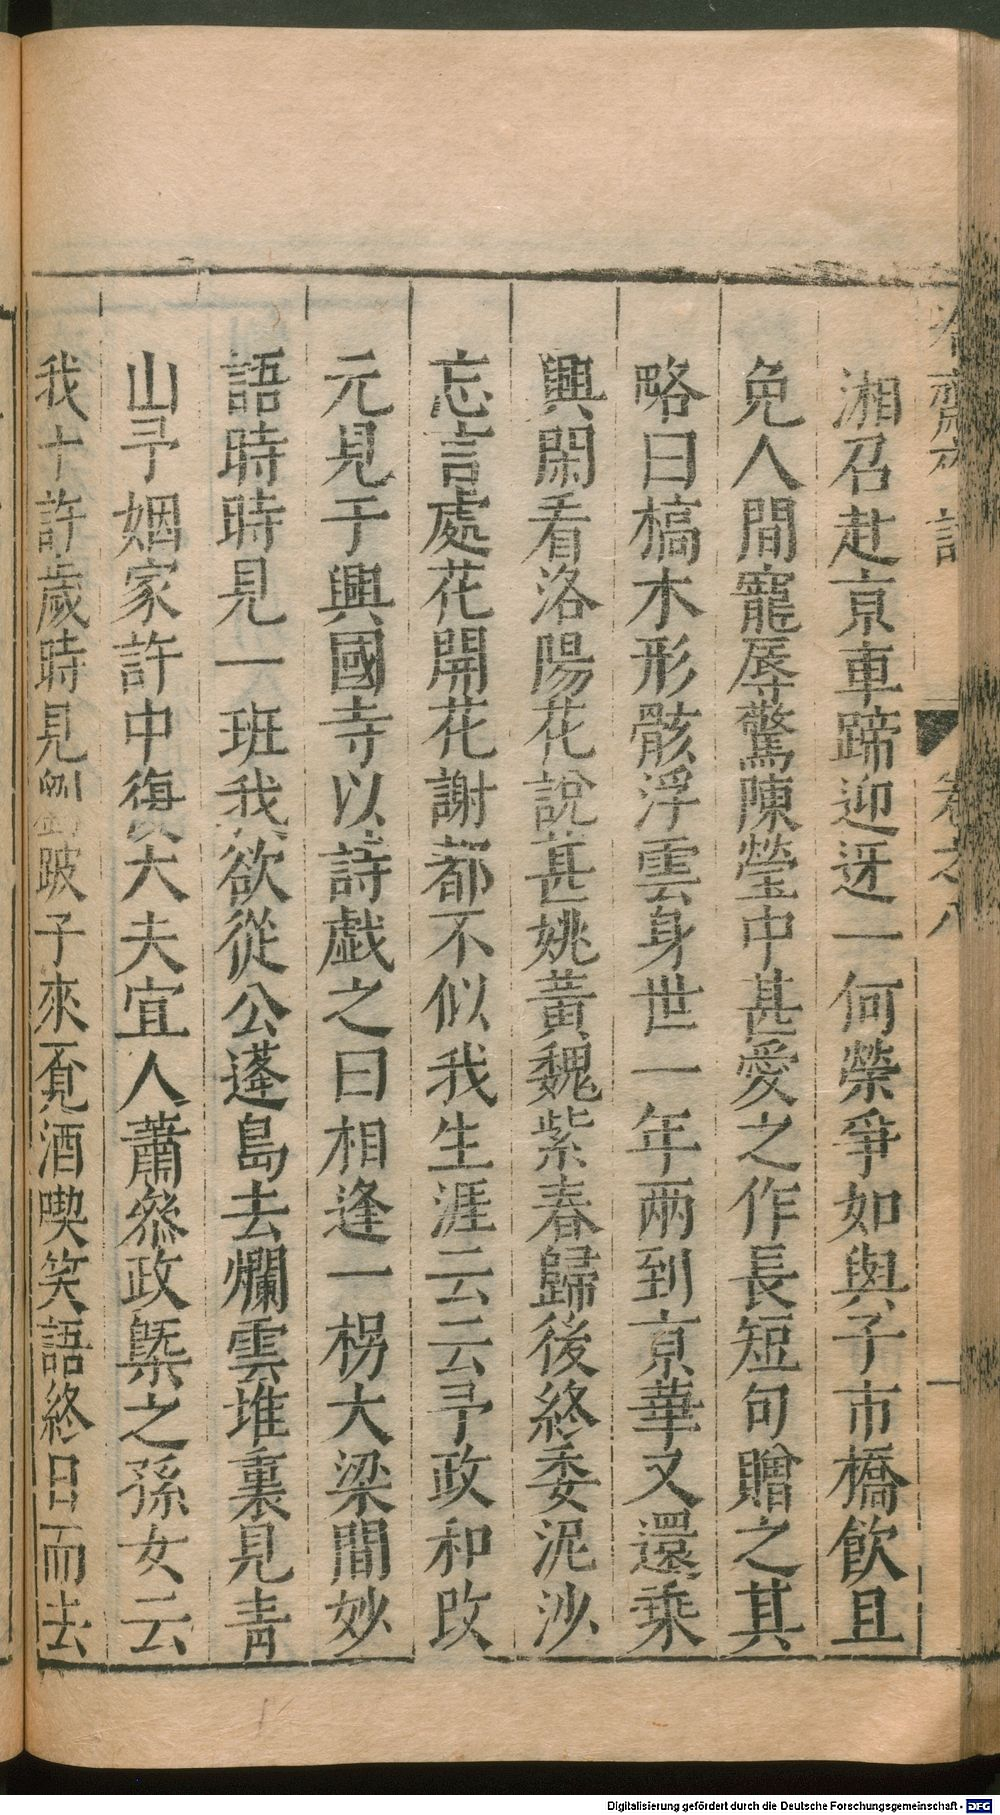 冷齋夜話
卷之八
一
湘召赴京車蹄迎迓一何榮爭如與子市橋飲且
免人間寵辱驚陳瑩中甚愛之作長短句贈之其
略曰槁木形骸浮雲身世一年兩到京華又還乘
興閑看洛陽花說甚姚黃魏紫春歸後終委泥沙
忘言處花開花謝都不似我生涯云云予政和改
元見于興國寺以詩戲之曰相逢一柺大梁間妙
語時時見一班我欲從公蓬島去爛雲堆裏見青
山予姻家許中復大夫宜人蕭叅政槩之孫女云
我十許歲時見劉跛子來覔酒喫笑語終日而去
Digitalisierung gefördert durch die Deutsche Forschungsgemeinschaft - DFG